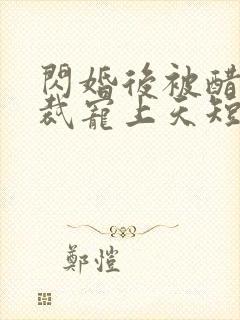 閃婚後被醋
裁寵上天短
鄭愷